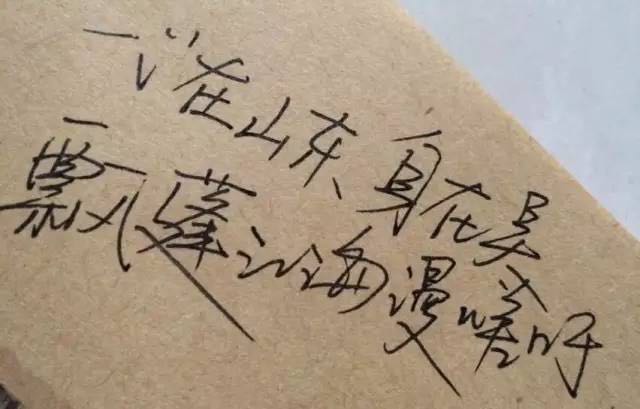 心在山东身在吴
飘蓬江海漫嗟吁